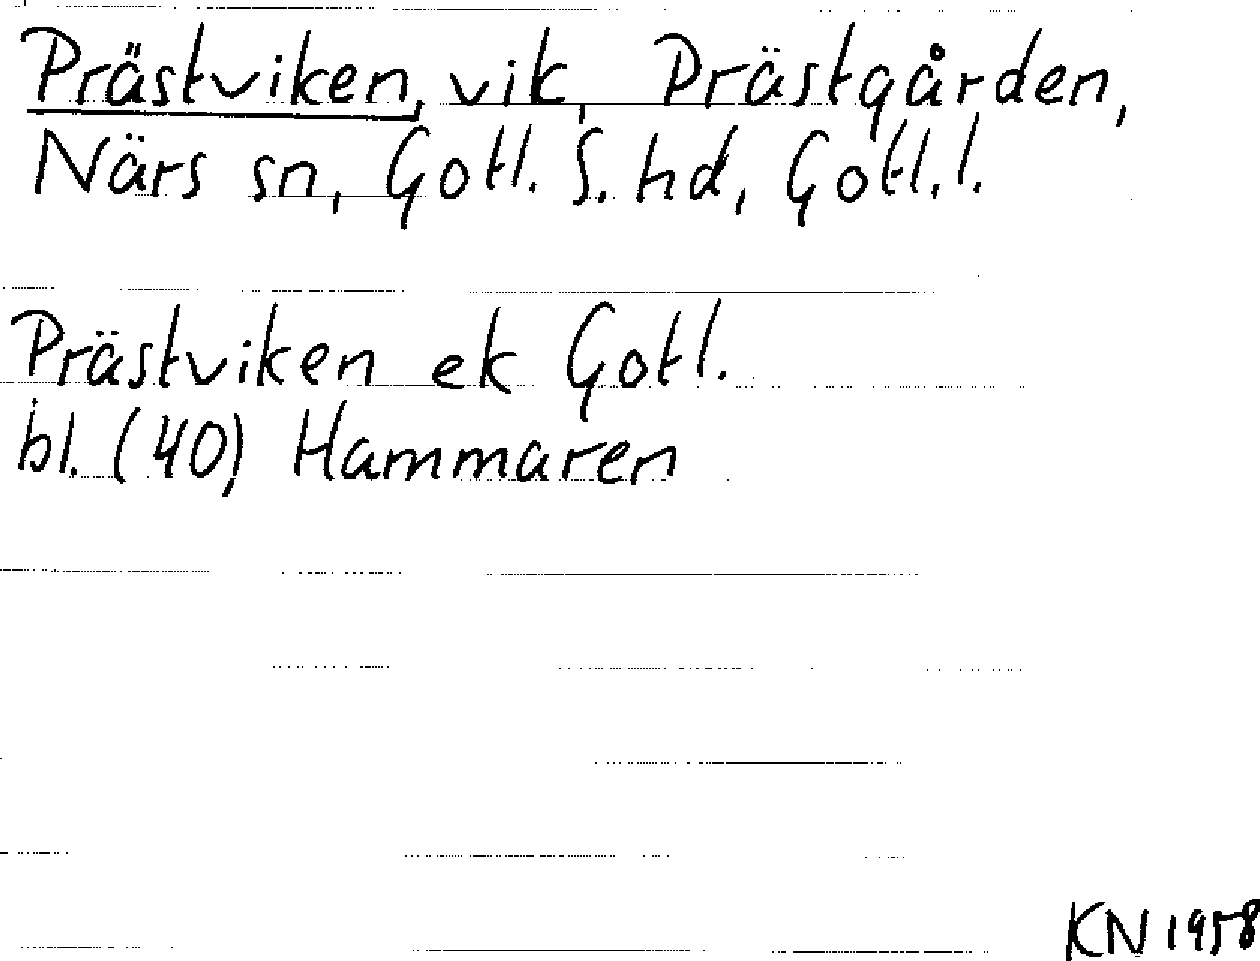 Prästviken, vik, Prästgården,
Närs sn, Gotl. S. hd, Gotl. l.
Prästviken ek Gotl.
bl. (40) Hammaren
KN 1958